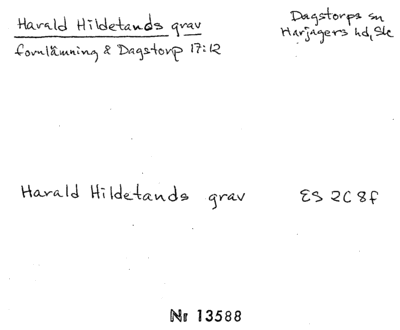 Harald Hildetands grav
fornlämning 8 Dagstorp 17:12
Dagstorps sn
Harjagers hd, Ske
Harald Hildetands grav ES 2C 8f
Nr 13588